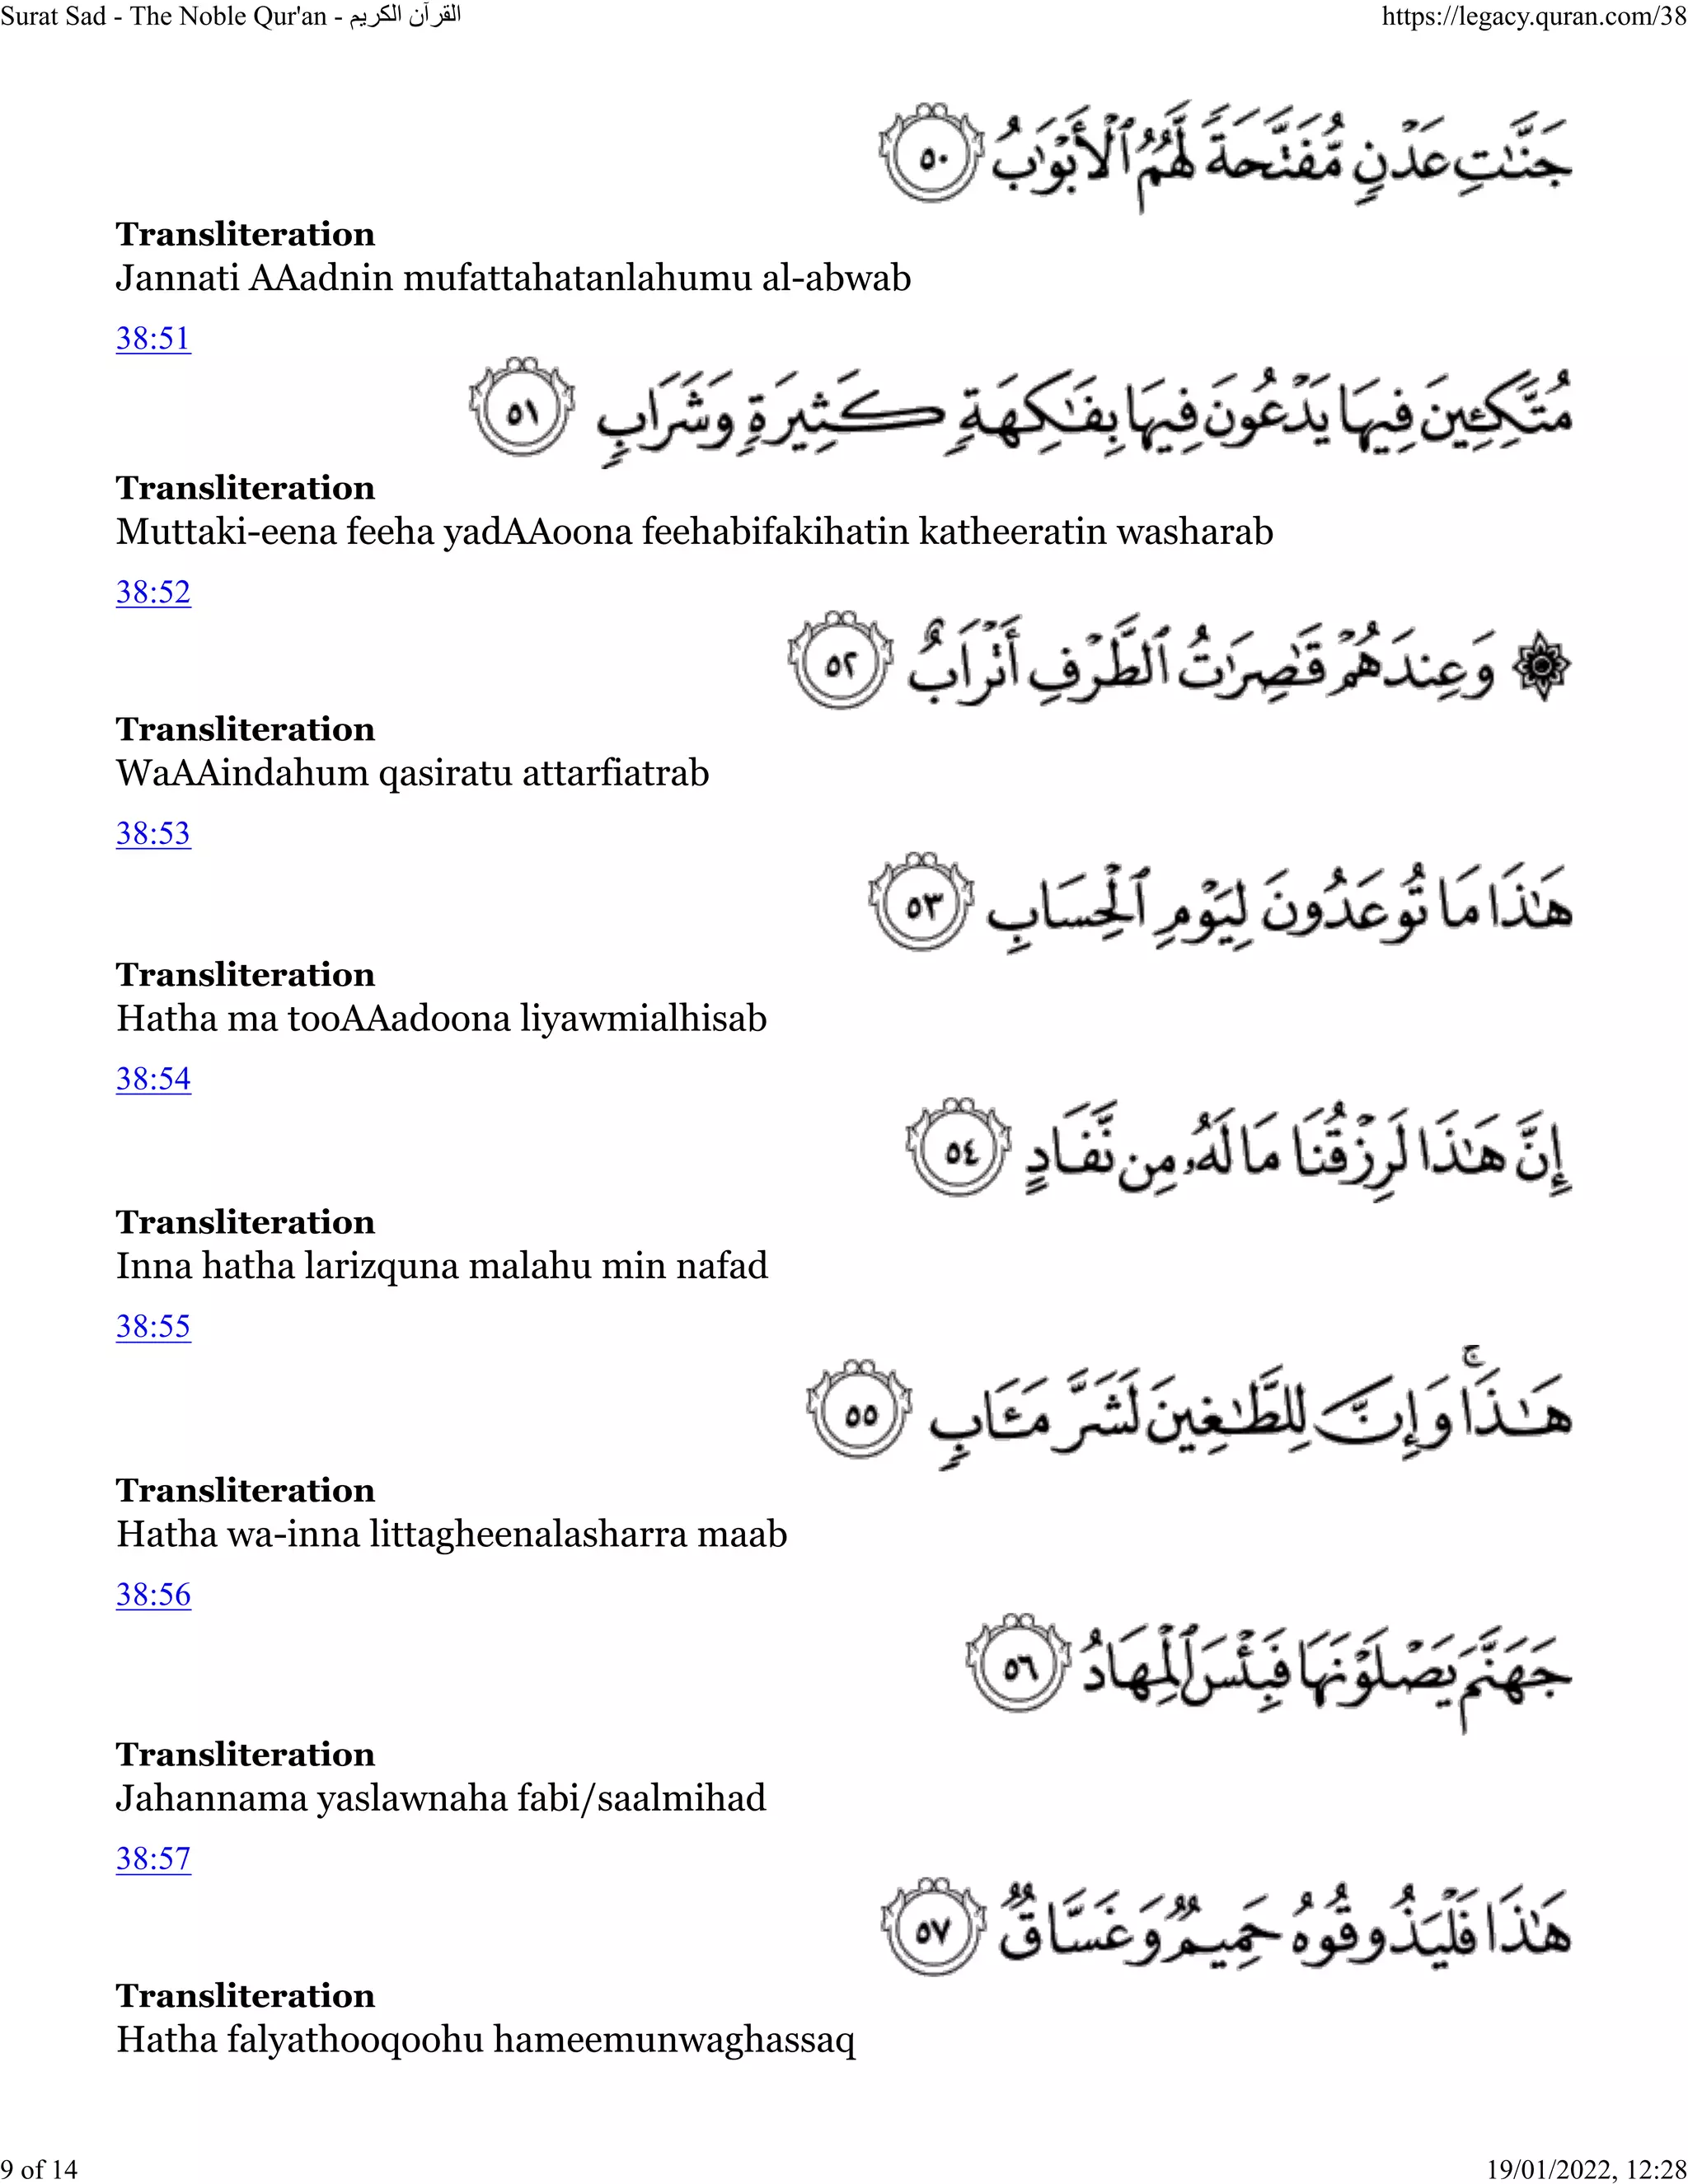 Surat Sad - The Noble Qur'an - القرآن الكريم
https://legacy.quran.com/38
جَنَّٰتِ عَدْنٍ مُّفَتَّحَةً لَّهُمُ ٱلْأَبْوَٰبُ ٥٠
Transliteration
Jannati AAadnin mufattahatanlahumu al-abwab
38:51
مُتَّكِـِٔينَ فِيهَا يَدْعُونَ فِيهَا بِفَٰكِهَةٍ كَثِيرَةٍ وَشَرَابٍ ٥١
Transliteration
Muttaki-eena feeha yadAAoona feehabifakihatin katheeratin washarab
38:52
۞ وَعِندَهُمْ قَٰصِرَٰتُ ٱلطَّرْفِ أَتْرَابٌ ٥٢
Transliteration
WaAAindahum qasiratu attarfiatrab
38:53
هَٰذَا مَا تُوعَدُونَ لِيَوْمِ ٱلْحِسَابِ ٥٣
Transliteration
Hatha ma tooAAadoona liyawmialhisab
38:54
إِنَّ هَٰذَا لَرِزْقُنَا مَا لَهُۥ مِن نَّفَادٍ ٥٤
Transliteration
Inna hatha larizquna malahu min nafad
38:55
هَٰذَا ۚ وَإِنَّ لِلطَّٰغِينَ لَشَرَّ مَـَٔابٍ ٥٥
Transliteration
Hatha wa-inna littagheenalasharra maab
38:56
جَهَنَّمَ يَصْلَوْنَهَا فَبِئْسَ ٱلْمِهَادُ ٥٦
Transliteration
Jahannama yaslawnaha fabi/saalmihad
38:57
هَٰذَا فَلْيَذُوقُوهُ حَمِيمٌ وَغَسَّاقٌ ٥٧
Transliteration
Hatha falyathooqoohu hameemunwaghassaq
9 of 14
19/01/2022, 12:28